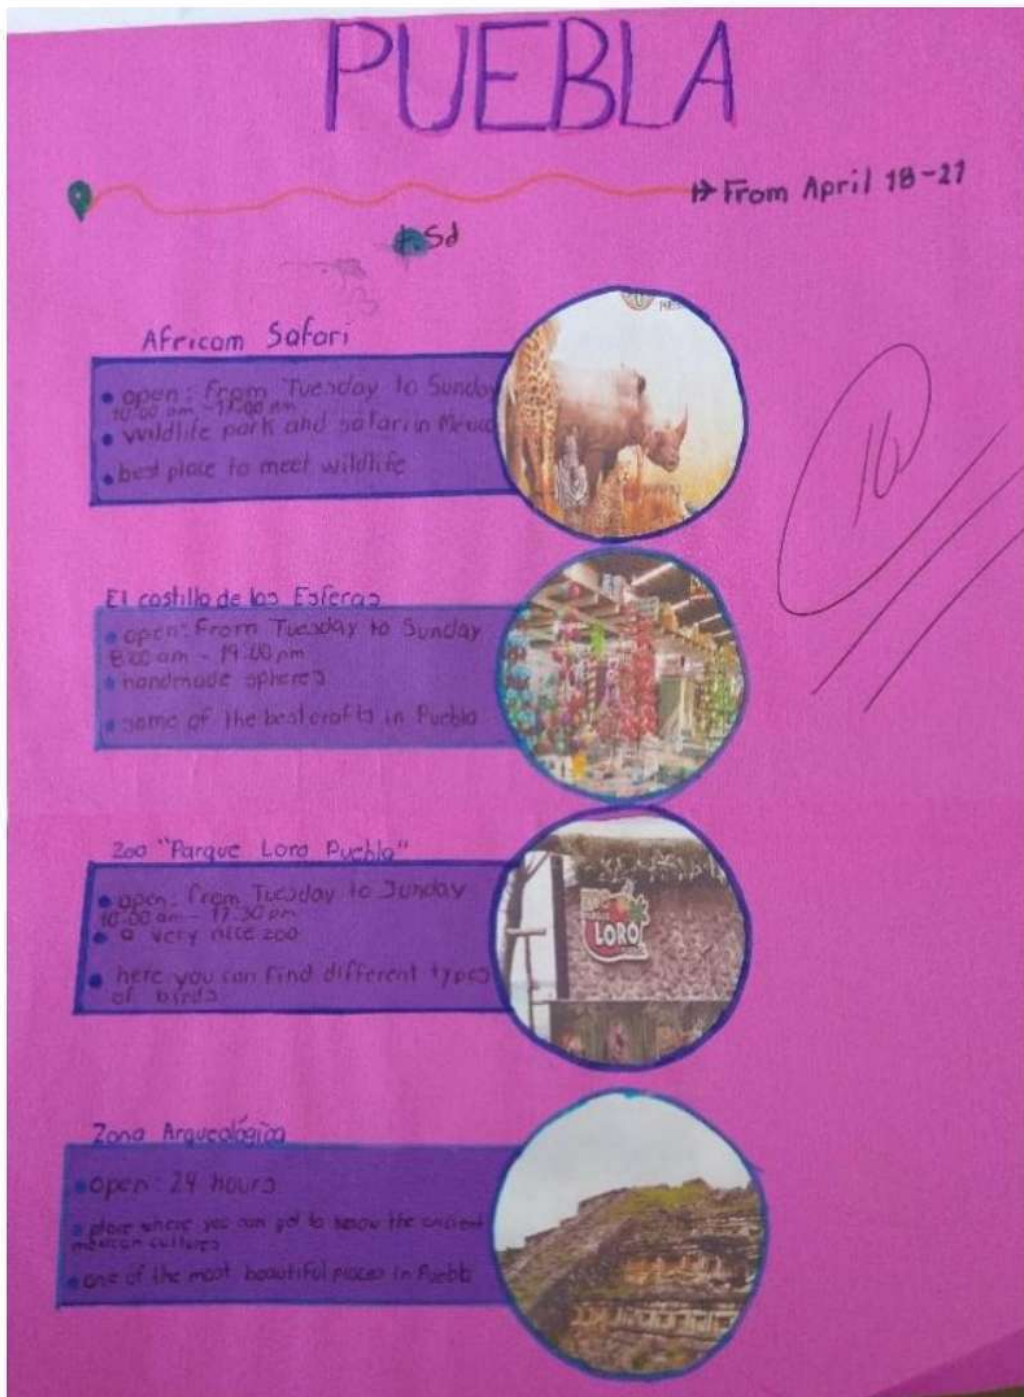 PUEBLA
From April 18-21
Sd
Africam Safari
open: From Tuesday to Sunday
10:00 am - 17:00 pm
wildlife park and safari in Mexico
best place to meet wildlife
El castillo de las Esferas
open: From Tuesday to Sunday
8:00 am - 19:00 pm
handmade spheres
some of the best crafts in Puebla
Zoo "Parque Loro Puebla"
open: from Tuesday to Sunday
10:00 am - 17:30 pm
a very nice zoo
here you can find different types
of birds
LORO
Zona Arqueológica
open: 24 hours
place where you can get to know the ancient
mexican cultures
one of the most beautiful places in Puebla
10